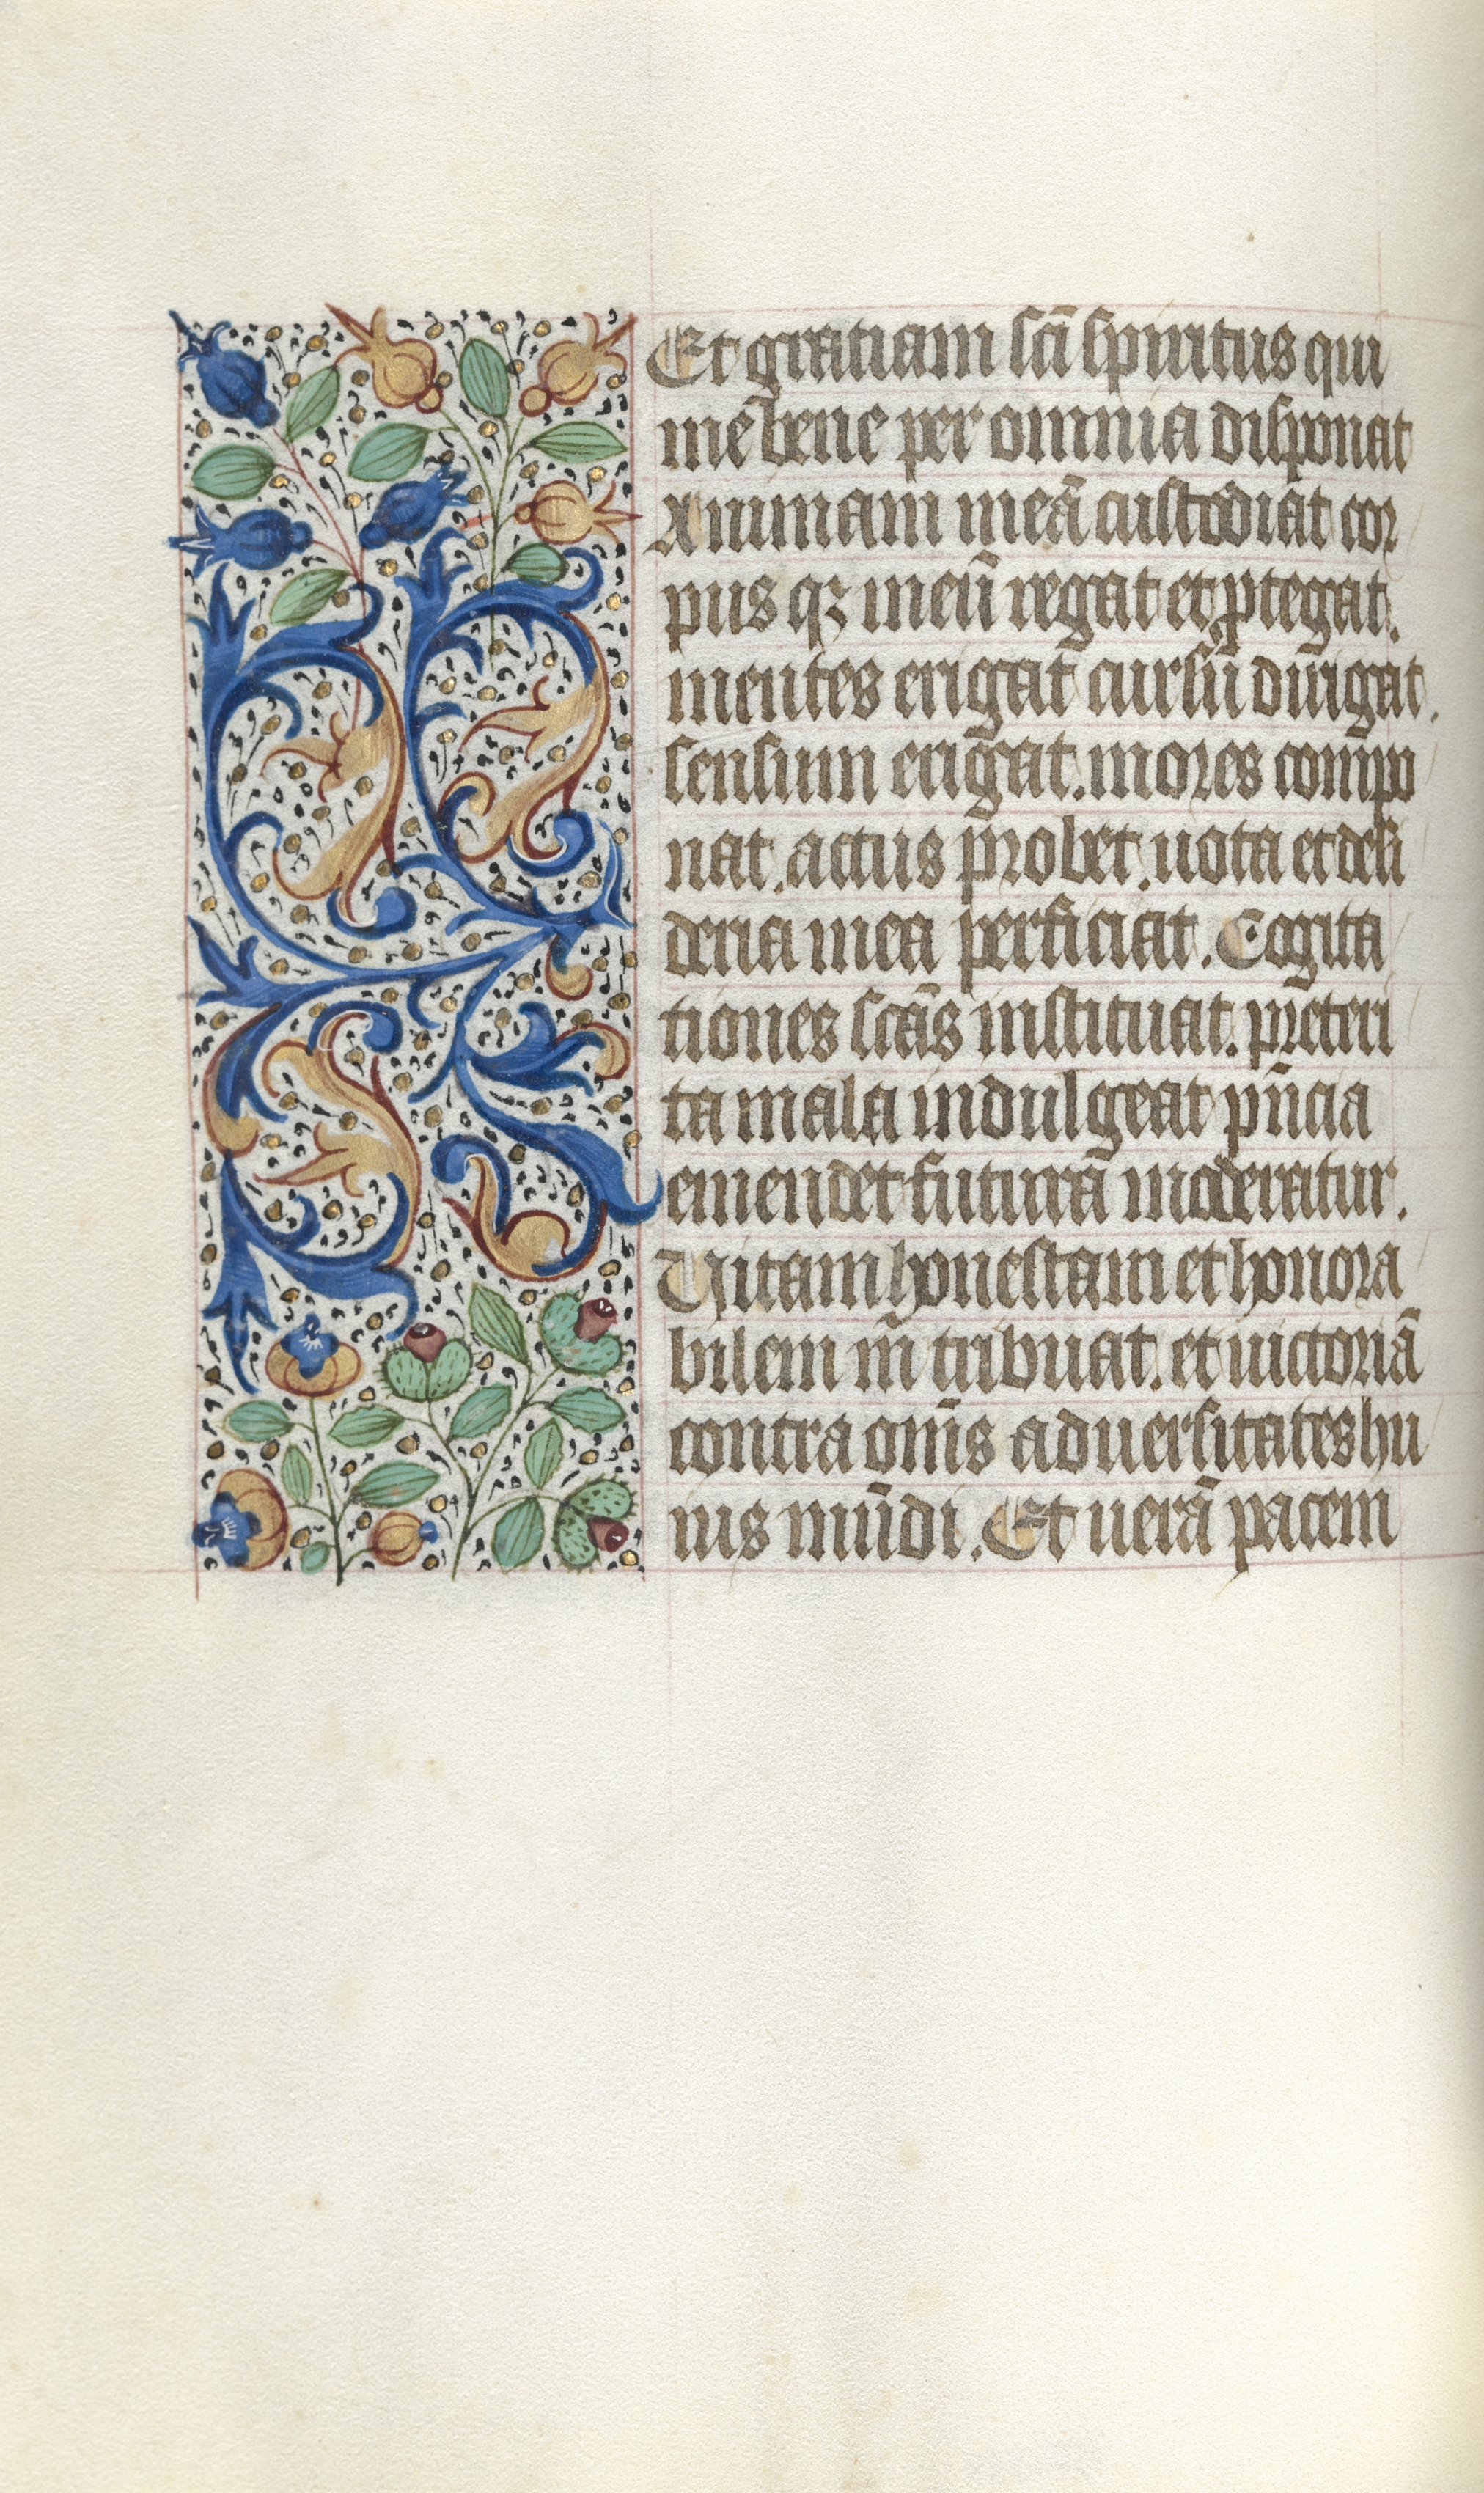 Et gratiam sc̄i spiritus qui
me bene per omnia disponat
Animam meā custodiat cor
pus qꝫ meū regat et ꝓtegat.
mentes erigat cursū dirigat.
sensum erigat. mores compo
nat. actus probet. uota et desi
deria mea perficiat. Cogita
tiones sc̄as instituat. preteri
ta mala indulgeat pn̄cia
emendet futurā moderatur.
Uitam honestam et honora
bilem m̄ tribuat. et uictoriā
contra om̄s aduersitates hu
ius mūdi. Et uerā pacem